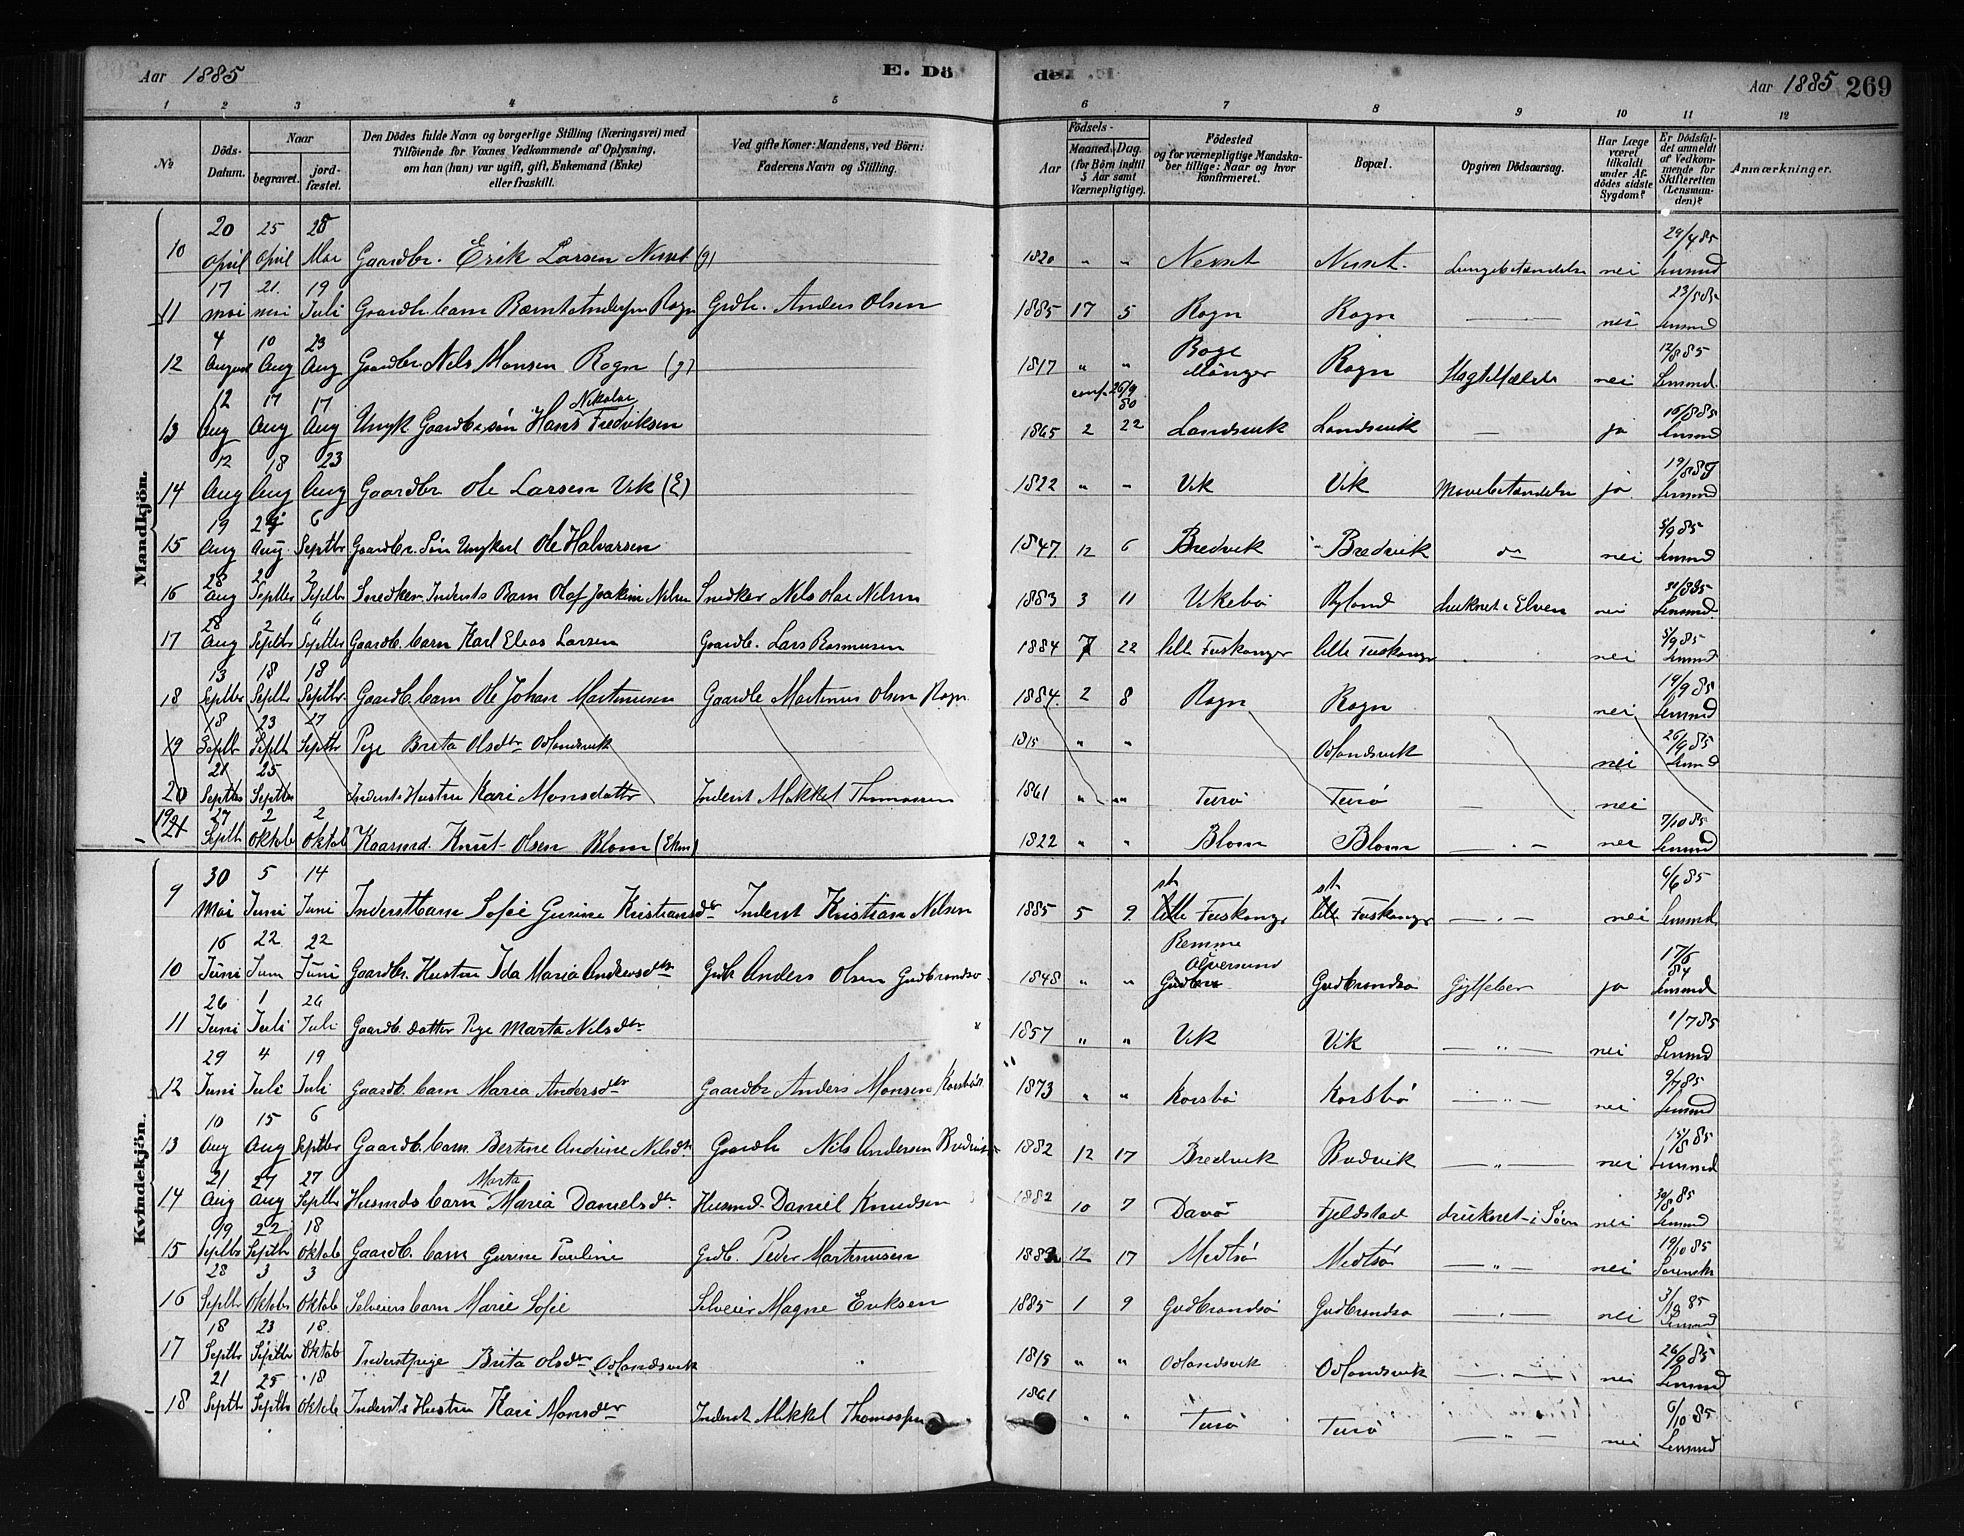 Aar 1885
E. Dö
de.
Aar 1885 269
1 2 3 4 5 6 7 8 9 10 11 12
№
Döds-Datum.
Naar
begravet.
jord-fæstet.
Den Dödes fulde Navn og borgerlige Stilling (Næringsvei) med
Tilföiende for Voxnes Vedkommende af Oplysning,
om han (hun) var ugift, gift, Enkemand (Enke)
eller fraskilt.
Ved gifte Koner: Mandens, ved Börn:
Faderens Navn og Stilling.
Födsels-
Aar
Maaned. Dag.
(for Börn indtil
5 Aar samt
Værnepligtige).
Födested
og for værnepligtige Mandska-
ber tillige: Naar og hvor
konfirmeret.
Bopæl.
Opgiven Dödsaarsag.
Har Læge
været
tilkaldt
under Af-
dödes sidste
Sygdom?
Er Dödsfal-
det anmeldt
af Vedkom-
mende for
Skifteretten
(Lensman-
den)?
Anmærkninger.
Mandkjön.
20 25 28 29/4 85
10 April April Mai Gaardbr. Erik Larsen Nesset (g) 1820 " " Nesset Nesset. Lungebetændelse nei Lensmd
17 21. 19 23/5 85
11 mai mai Juli Gaardbr. barn Bernt Andersen Rogn Grdbr. Anders Olsen 1885 17 5 Rogn Rogn — nei Lensmd
4 10 23 12/8 85
12 August Aug Aug Gaardbr Nils Monsen Rogn (g) 1817 " " Boge Manger Rogn Slagtilfælde nei Lensmd.
12 17 17 Nikolai conf. 26/9 80 16/8 85
13 Aug Aug Aug Ungk. Gaardbr. sön Hans Fredriksen 1865 2 22 Landsvik Landsvik — ja Lensmd
12 18 23
14 Aug Aug Aug Gaardbr Ole Larsen Vik (E) 1822 " " Vik Vik Mavebetændelse ja Lensmd
19 24 6 5/9 85
15 Aug Aug. Septbr Gaardbr. Sön Ungkarl Ole Halvarsen 1847 12 6 Bredvik Bredvik do nei Lensmd
28 2 2 31/8 85
16 Aug Septbr Septbr Snedker Indersts Barn Olaf Joakim Nilsen Snedker Nils Olai Nilsen 1883 3 11 Ukebö Ryland druknet i Elven nei Lensmd.
28 2 6 5/9 85
17 Aug Septbr Septbr Gaardb. barn Karl Elias Larsen Gaardb. Lars Rasmusen 1884 7 22 lille Fuskanger lille Fuskanger nei Lensmd
13 18 18 19/9 85
18 Septbr Septbr Septbr. Gaardb. barn Ole Johan Martinusen Gaardb Martinus Olsen Rogn. 1884. 2 8 Rogn Rogn nei Lensmd
18 23 27 26/9 85
19 Septbr Septbr Septbr Pige Brita Olsdtr Odlandsvik 1815 " " Odlandsvik nei Lensmd
21 25
20 Septbr Septbr Inderst Hustru Kari Monsdatter Inderst Mikkel Thomassen 1861 " " Turö Turö — nei
27 2 2 7/10 85
19 21 Septbr Oktob Oktob Kaarmd. Knut Olsen Blom (Ekm) 1822 " " Blom Blom — " — nei Lensmd
Kvindekjön.
30 5 14 st st 6/6 85
9 Mai Juni Juni Inderstbarn Sofie Gurine Kristiansdtr Inderst Kristian Nilsen 1885 5 9 lille Fuskanger lille Fuskanger — " — nei Lensmd
16 22 22 Remme Alversund 17/6 84
10 Juni Juni Juni Gaardbr. Hustru Ida Maria Andersdtr Grdb Anders Olsen Gudbrandsö 1848 " " Gudbrandsö Gigtfeber ja Lensmd
26 1 26 1/7 85
11 Juni Juli Juli Gaardb. datter Pige Marta Nilsdtr 1857 " " Vik Vik — " — nei Lensmd
29 4 19 9/7 85
12 Juni Juli Juli Gaardb. barn Maria Andersdtr Gaardbr Anders Monsen Korsbö 1873 " " Korsbö Korsbö — " — nei Lensmd
10 15 6 15/8 85
13 Aug Aug Septbr Gaardb. barn Bertine Andrine Nilsdtr Gaardb Nils Andersen Bredvik 1882 12 17 Bredvik Bredvik — " — nei Lensmd
21 27 27 Marta 30/8 85
14 Aug Aug Septbr Husmds barn Maria Danielsdtr Husmd. Daniel Knudsen 1882 10 7 Davö Fjeldstad druknet i Söen nei Lensmd
19 22 18 19/10 85
15 Septbr Septbr Oktob Gaardb. barn Gurine Pauline Grdb. Peder Martinusen 1882 12 17 Midtsö Midtsö — " — nei
28 3 3 3/10 85
16 Septbr Oktobr Oktob Selveiers barn Marie Sofie Selveier Magne Eriksen 1885 1 9 Gudbrandsö Gudbrandsö — " — nei Lensmd
18 23 18. 26/9 85
17 Septbr Septbr Oktob Inderstpige Brita Olsdtr Odlandsvik 1815 " " Odlandsvik Odlandsvik — " — nei Lensmd
21 25 18 6/10 85
18 Septbr Septbr Oktobr Inderst Hustru Kari Monsdtr Inderst Mikkel Thomassen 1861 " " Turö Turö — " — nei Lensmd